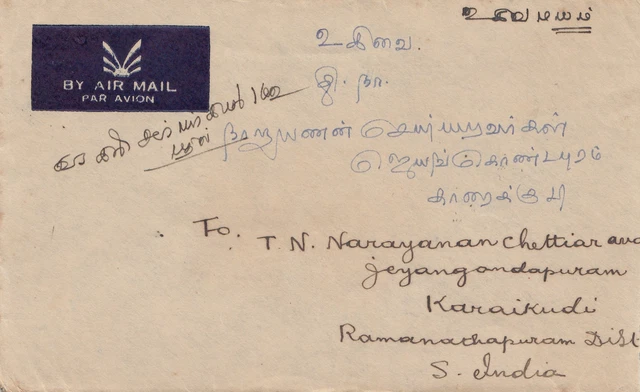 உ சிவமயம்
BY AIR MAIL
PAR AVION
உ சிவை.
தி. நா.
நாராயணன் செட்டியாரவர்கள்
ஜெயங்கொண்டபுரம்
காரைக்குடி
To.
T. N. Narayanan Chettiar ava
Jeyangondapuram
Karaikudi
Ramanathapuram Dist
S. India